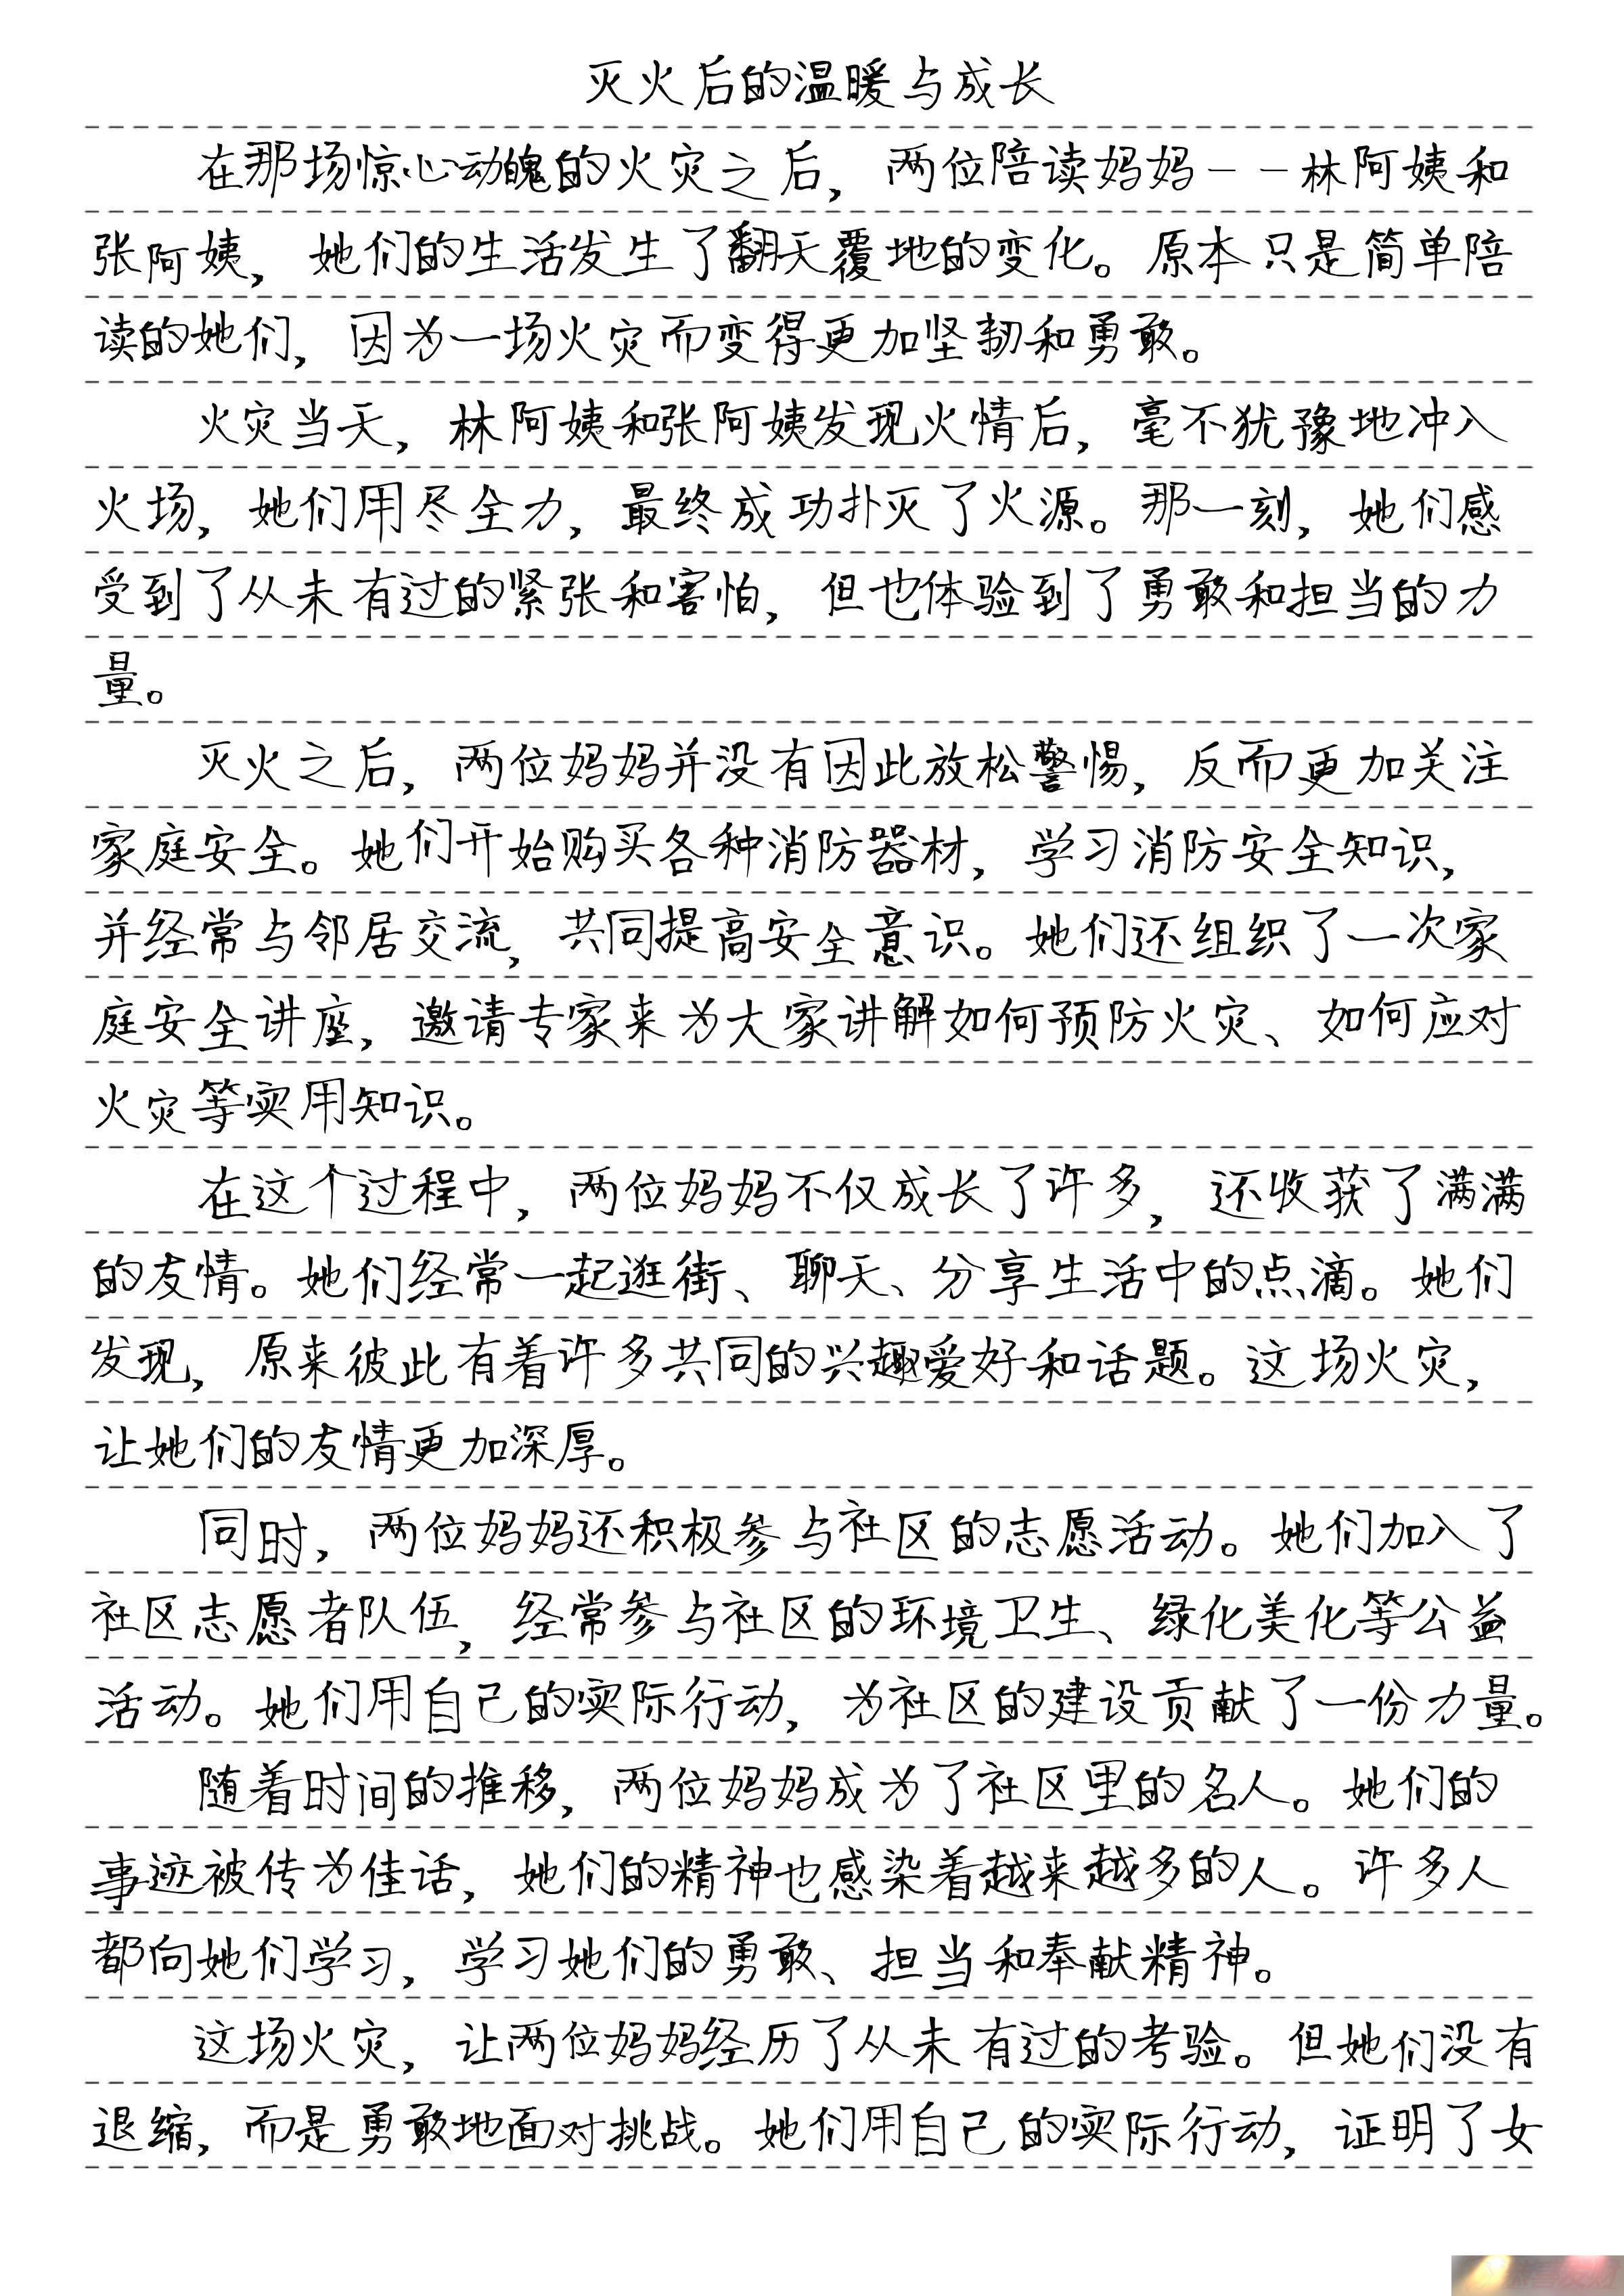 灭火后的温暖与成长
在那场惊心动魄的火灾之后，两位陪读妈妈--林阿姨和
张阿姨，她们的生活发生了翻天覆地的变化。原本只是简单陪
读的她们，因为一场火灾而变得更加坚韧和勇敢。
火灾当天，林阿姨和张阿姨发现火情后，毫不犹豫地冲入
火场，她们用尽全力，最终成功扑灭了火源。那一刻，她们感
受到了从未有过的紧张和害怕，但也体验到了勇敢和担当的力
量。
灭火之后，两位妈妈并没有因此放松警惕，反而更加关注
家庭安全。她们开始购买各种消防器材，学习消防安全知识，
并经常与邻居交流，共同提高安全意识。她们还组织了一次家
庭安全讲座，邀请专家来为大家讲解如何预防火灾、如何应对
火灾等实用知识。
在这个过程中，两位妈妈不仅成长了许多，还收获了满满
的友情。她们经常一起逛街、聊天、分享生活中的点滴。她们
发现，原来彼此有着许多共同的兴趣爱好和话题。这场火灾，
让她们的友情更加深厚。
同时，两位妈妈还积极参与社区的志愿活动。她们加入了
社区志愿者队伍，经常参与社区的环境卫生、绿化美化等公益
活动。她们用自己的实际行动，为社区的建设贡献了一份力量。
随着时间的推移，两位妈妈成为了社区里的名人。她们的
事迹被传为佳话，她们的精神也感染着越来越多的人。许多人
都向她们学习，学习她们的勇敢、担当和奉献精神。
这场火灾，让两位妈妈经历了从未有过的考验。但她们没有
退缩，而是勇敢地面对挑战。她们用自己的实际行动，证明了女